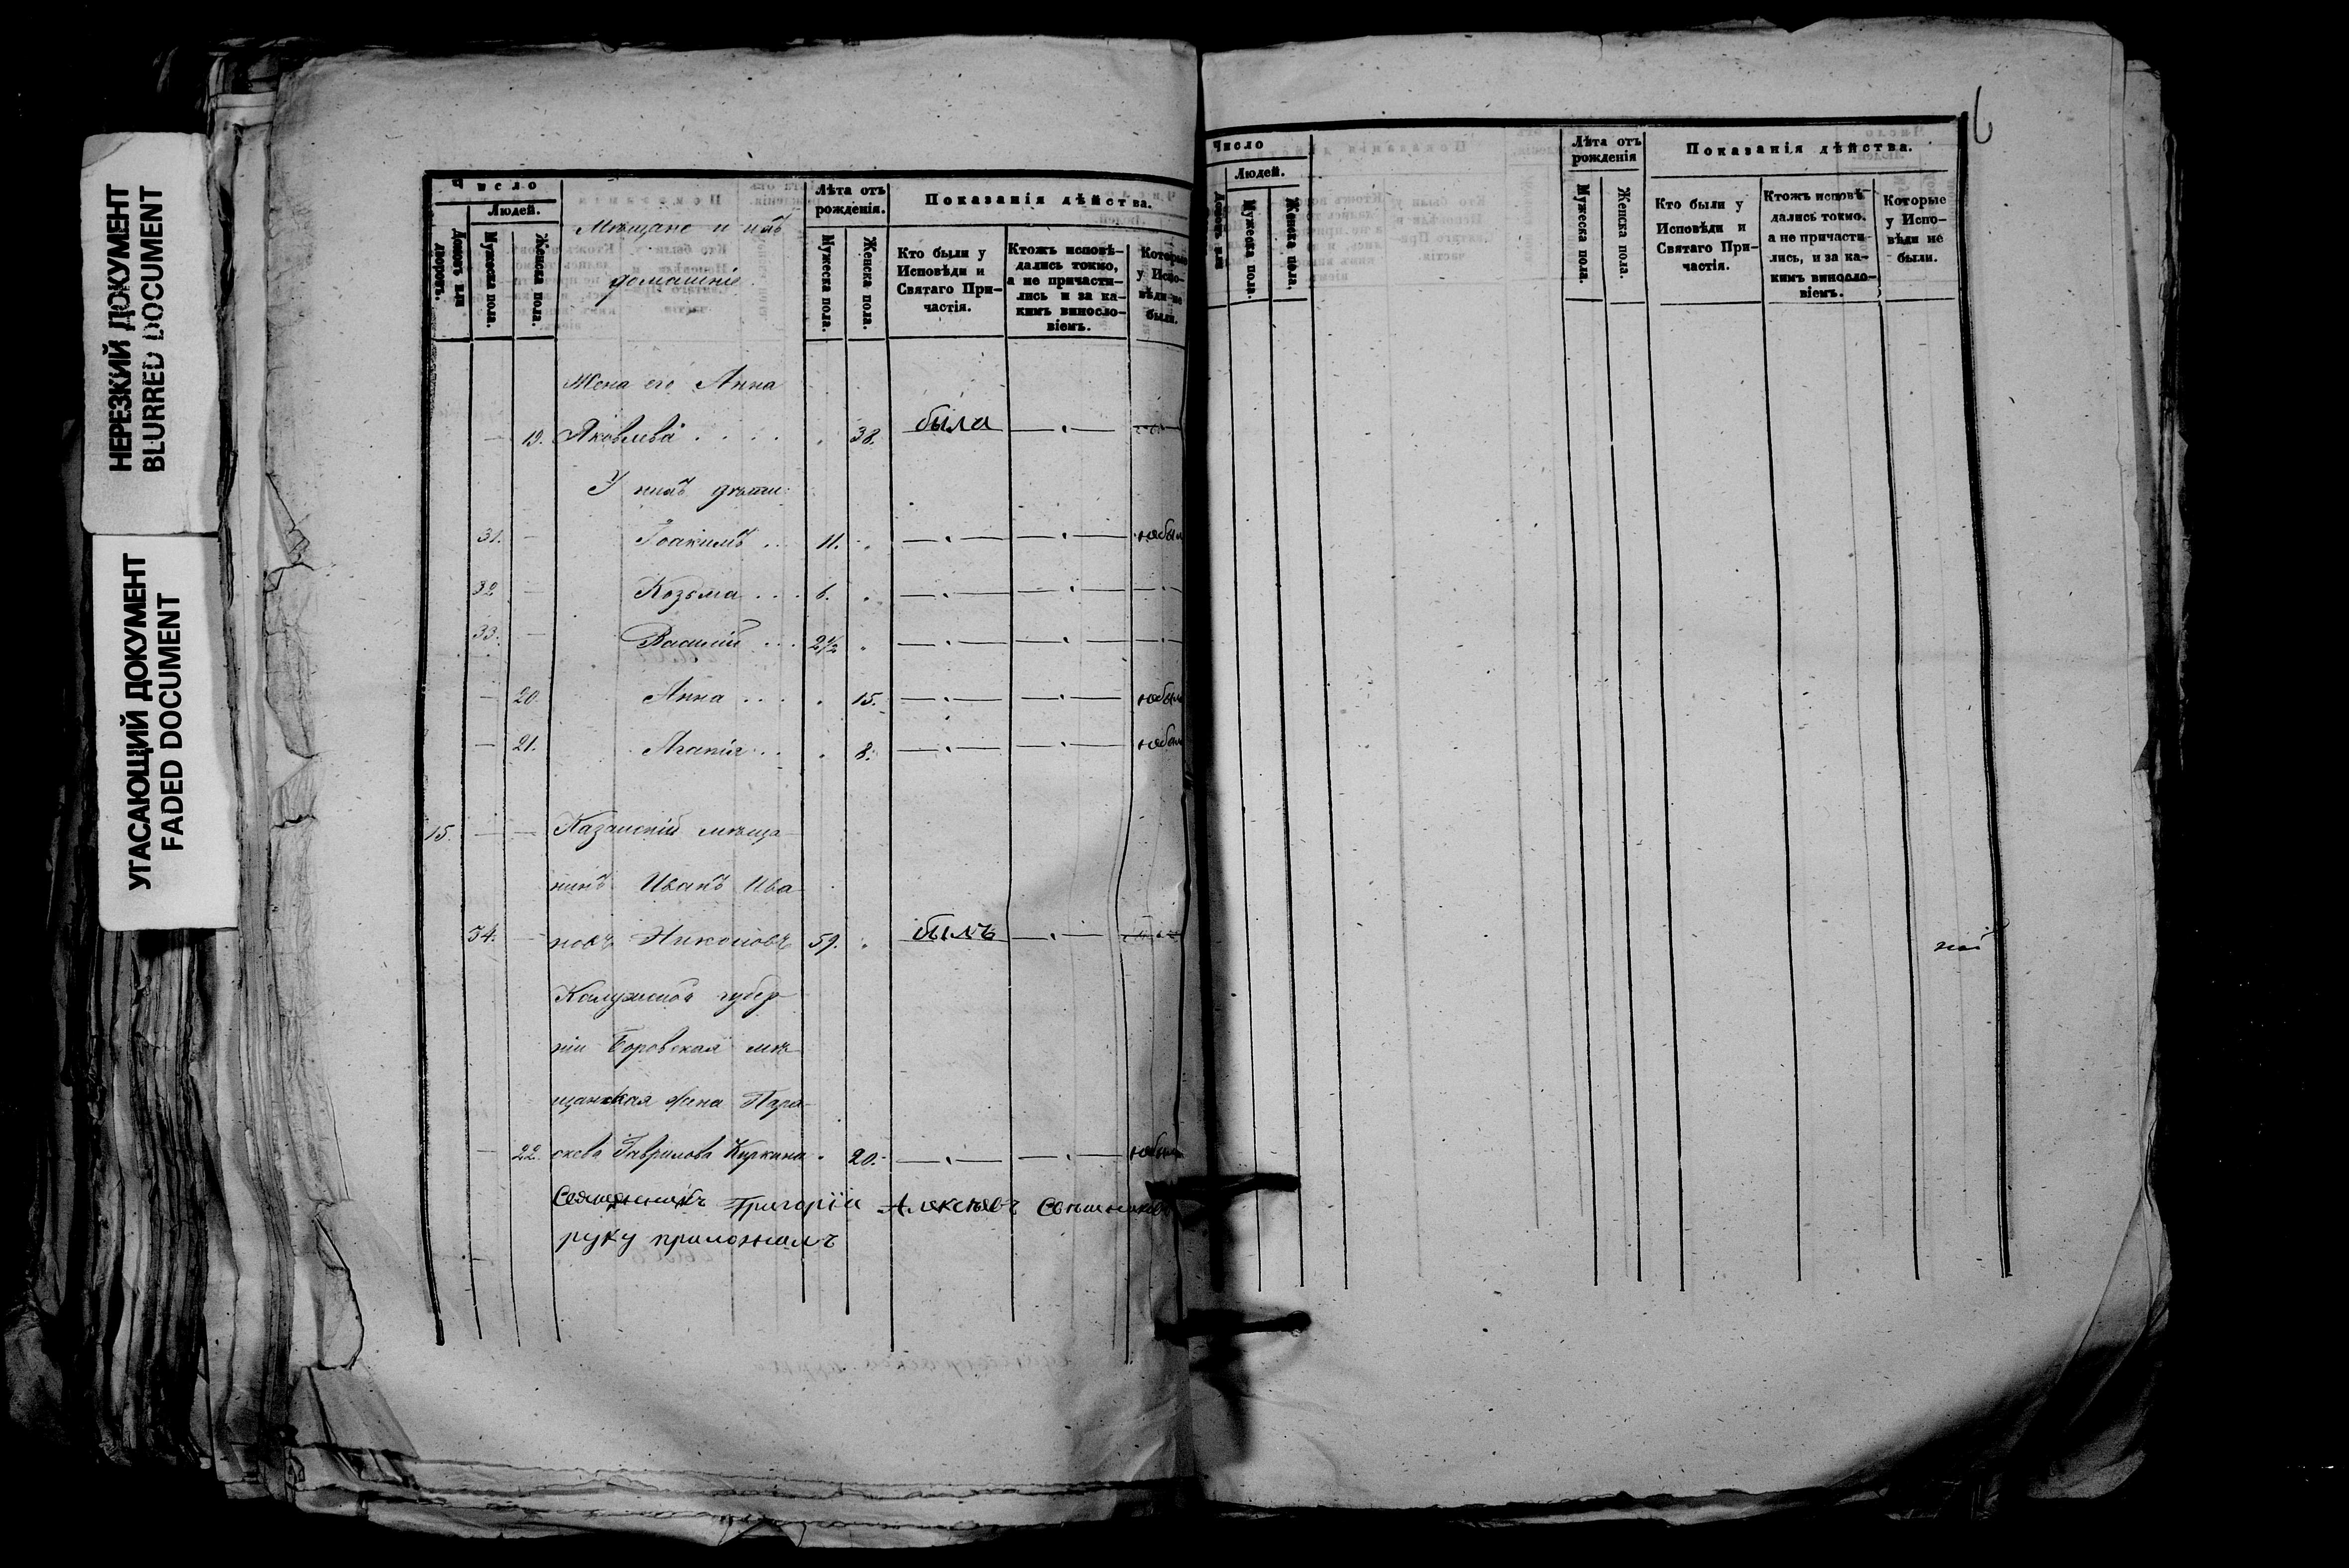 НЕРЕЗКИЙ ДОКУМЕНТ
BLURRED DOCUMENT
УГАСАЮЩИЙ ДОКУМЕНТ
FADED DOCUMENT
Число
Людей.
Домовъ или дворовъ.
Мужеска пола.
Женска пола.
Мѣщане и ихъ
домашніе.
Лѣта отъ рожденія.
Мужеска пола.
Женска пола.
Показанія дѣйства.
Кто были у Исповѣди и Святаго Причастія.
Ктожъ исповѣдались токмо, а не причастились и за какимъ винословіемъ.
Которые у Исповѣди не были.
Жена его Анна
19. Яковлева . . . . 38. была
У нихъ дѣти:
31. Іоакимъ . . 11. небыл
32 Козьма . . . 6.
33. Василій . . . 2 1/2
20. Анна . . . 15. небыла
21. Агапія . . 8. небыла
15. Казанскій мѣща
нинъ Иванъ Ива
34. новъ Никоновъ 59. былъ
Калужской губер
ніи Боровская мѣ
щанская жена Пара
22. скева Гаврилова Киркина 20. небыла
Священникъ Григорій Алексѣевъ
руку приложилъ
6
Число
Людей.
Домовъ или
Мужеска пола.
Женска пола.
Лѣта отъ рожденія
Мужеска пола.
Женска пола.
Показанія дѣйства.
Кто были у Исповѣди и Святаго Причастія.
Ктожъ исповѣдались токмо, а не причастились, и за какимъ винословіемъ.
Которые у Исповѣди не были.